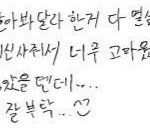 아봐달라 한거 다 열심
신사줘서 너무 고마웠
았을텐데....
잘부탁...^^